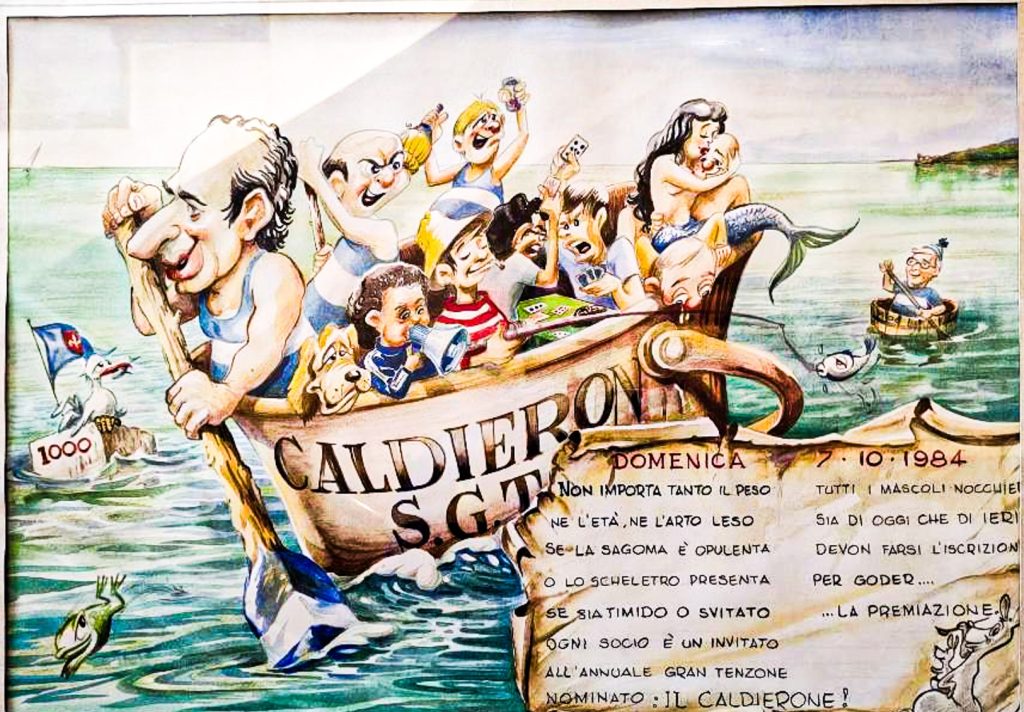 1000
CALDIERON
S.G.T.
DOMENICA 7·10·1984
NON IMPORTA TANTO IL PESO
NE L'ETÀ, NE L'ARTO LESO
SE LA SAGOMA È OPULENTA
O LO SCHELETRO PRESENTA
SE SIA TIMIDO O SVITATO
OGNI SOCIO È UN INVITATO
ALL'ANNUALE GRAN TENZONE
NOMINATO: IL CALDIERONE!
TUTTI I MASCOLI NOCCHIE
SIA DI OGGI CHE DI IERI
DEVON FARSI L'ISCRIZION
PER GODER....
...LA PREMIAZIONE.